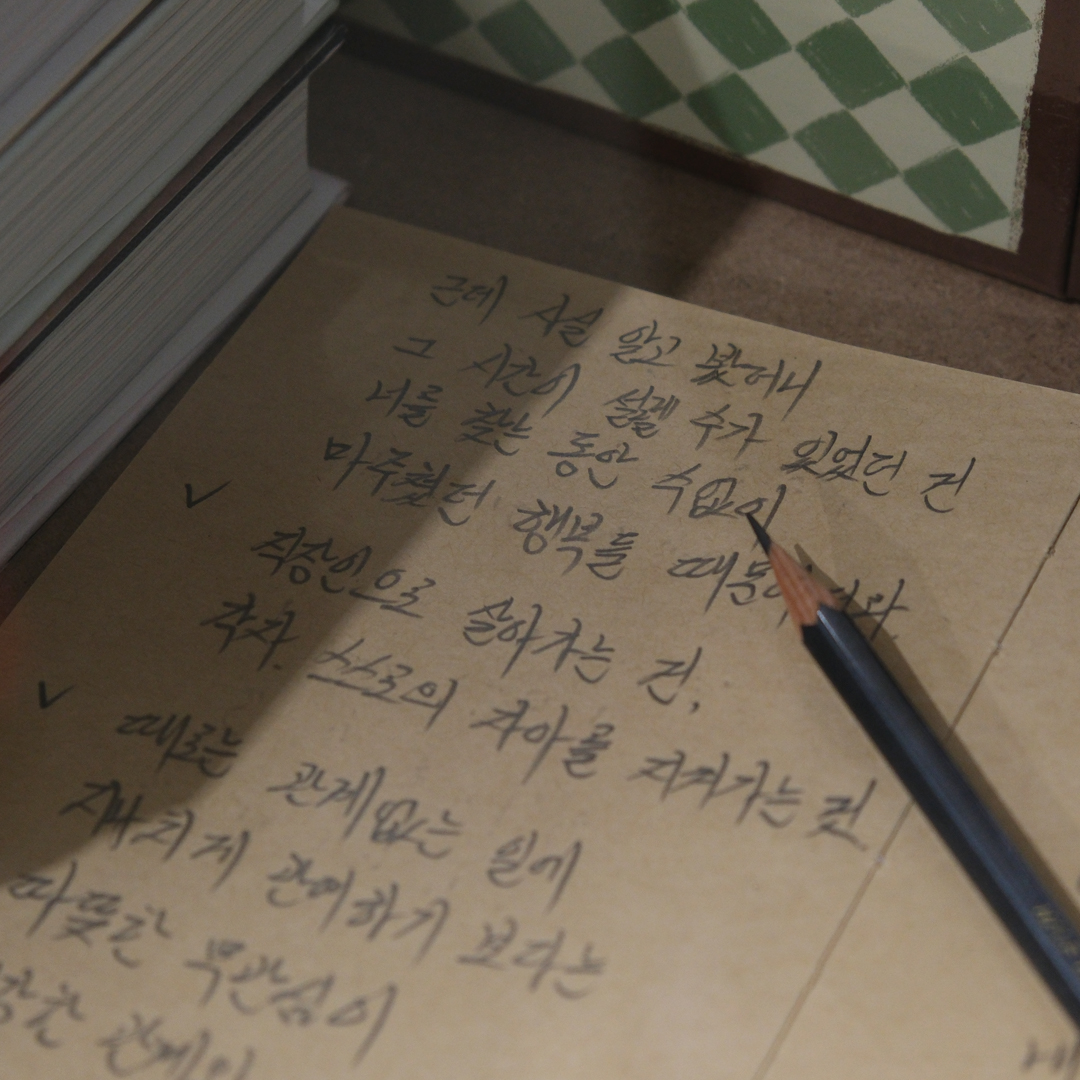 근데 사실 알고 봤더니
그 시간이 설렐 수가 있었던 건
너를 찾는 동안 수없이
마주쳤던 행복들
✓ 직장인으로 살아가는 건,
각자. 스스로의 자아를 지켜가는 것.
✓ 때로는 관계없는 일에
지나치게 관여하기 보다는
따뜻한 무관심이
관계